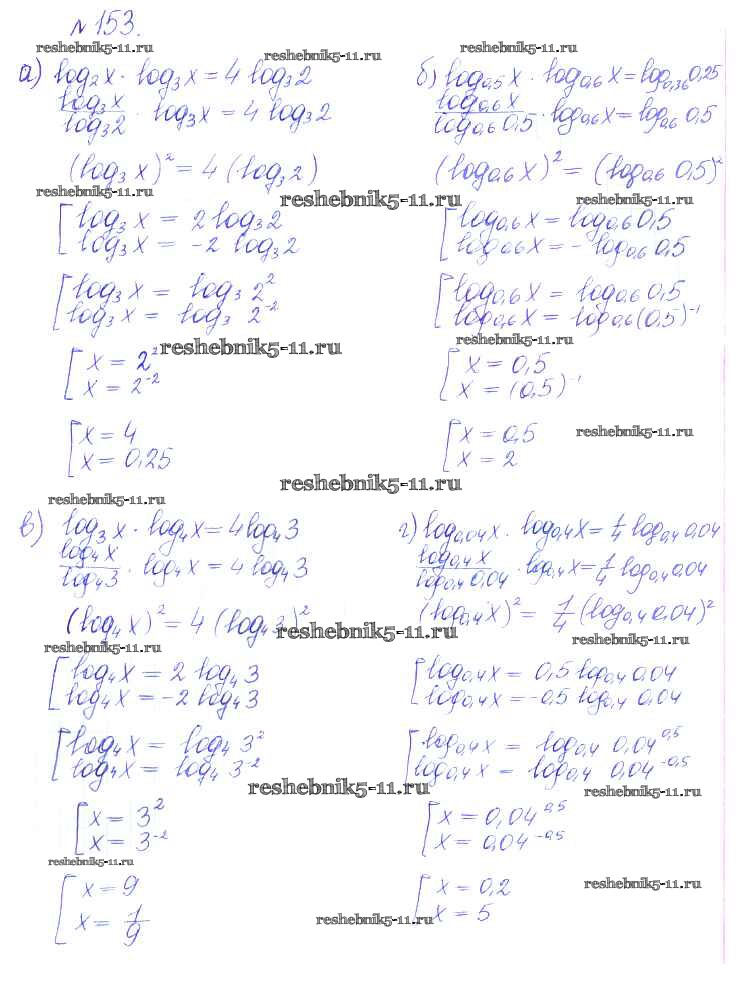 № 153.
reshebnik5-11.ru reshebnik5-11.ru reshebnik5-11.ru
а) log₂x · log₃x = 4 log₃2
log₃x / log₃2 · log₃x = 4 log₃2
(log₃x)² = 4 (log₃2)
reshebnik5-11.ru
[ log₃x = 2 log₃2
log₃x = -2 log₃2
[ log₃x = log₃2²
log₃x = log₃ 2⁻²
[ x = 2²
x = 2⁻²
reshebnik5-11.ru
[ x = 4
x = 0,25
reshebnik5-11.ru
б) log₀,₅x · log₀,₆x = log₀,₃₆0,25
log₀,₆x / log₀,₆0,5 · log₀,₆x = log₀,₆ 0,5
(log₀,₆x)² = (log₀,₆ 0,5)²
reshebnik5-11.ru reshebnik5-11.ru
[ log₀,₆x = log₀,₆0,5
log₀,₆x = - log₀,₆0,5
[ log₀,₆x = log₀,₆0,5
log₀,₆x = log₀,₆(0,5)⁻¹
reshebnik5-11.ru
[ x = 0,5
x = (0,5)⁻¹
[ x = 0,5
x = 2
reshebnik5-11.ru
reshebnik5-11.ru
в) log₃x · log₄x = 4log₄3
log₄x / log₄3 · log₄x = 4 log₄3
(log₄x)² = 4 (log₄3)²
reshebnik5-11.ru
reshebnik5-11.ru
[ log₄x = 2 log₄3
log₄x = -2 log₄3
[ log₄x = log₄3²
log₄x = log₄ 3⁻²
reshebnik5-11.ru
[ x = 3²
x = 3⁻²
reshebnik5-11.ru
[ x = 9
x = 1/9
г) log₀,₀₄x · log₀,₄x = 1/4 log₀,₄0,04
log₀,₄x / log₀,₄0,04 · log₀,₄x = 1/4 log₀,₄0,04
(log₀,₄x)² = 1/4 (log₀,₄0,04)²
reshebnik5-11.ru
[ log₀,₄x = 0,5 log₀,₄ 0,04
log₀,₄x = -0,5 log₀,₄ 0,04
[ log₀,₄x = log₀,₄ 0,04^0,5
log₀,₄x = log₀,₄ 0,04^-0,5
reshebnik5-11.ru
[ x = 0,04^0,5
x = 0,04^-0,5
[ x = 0,2
x = 5
reshebnik5-11.ru
reshebnik5-11.ru